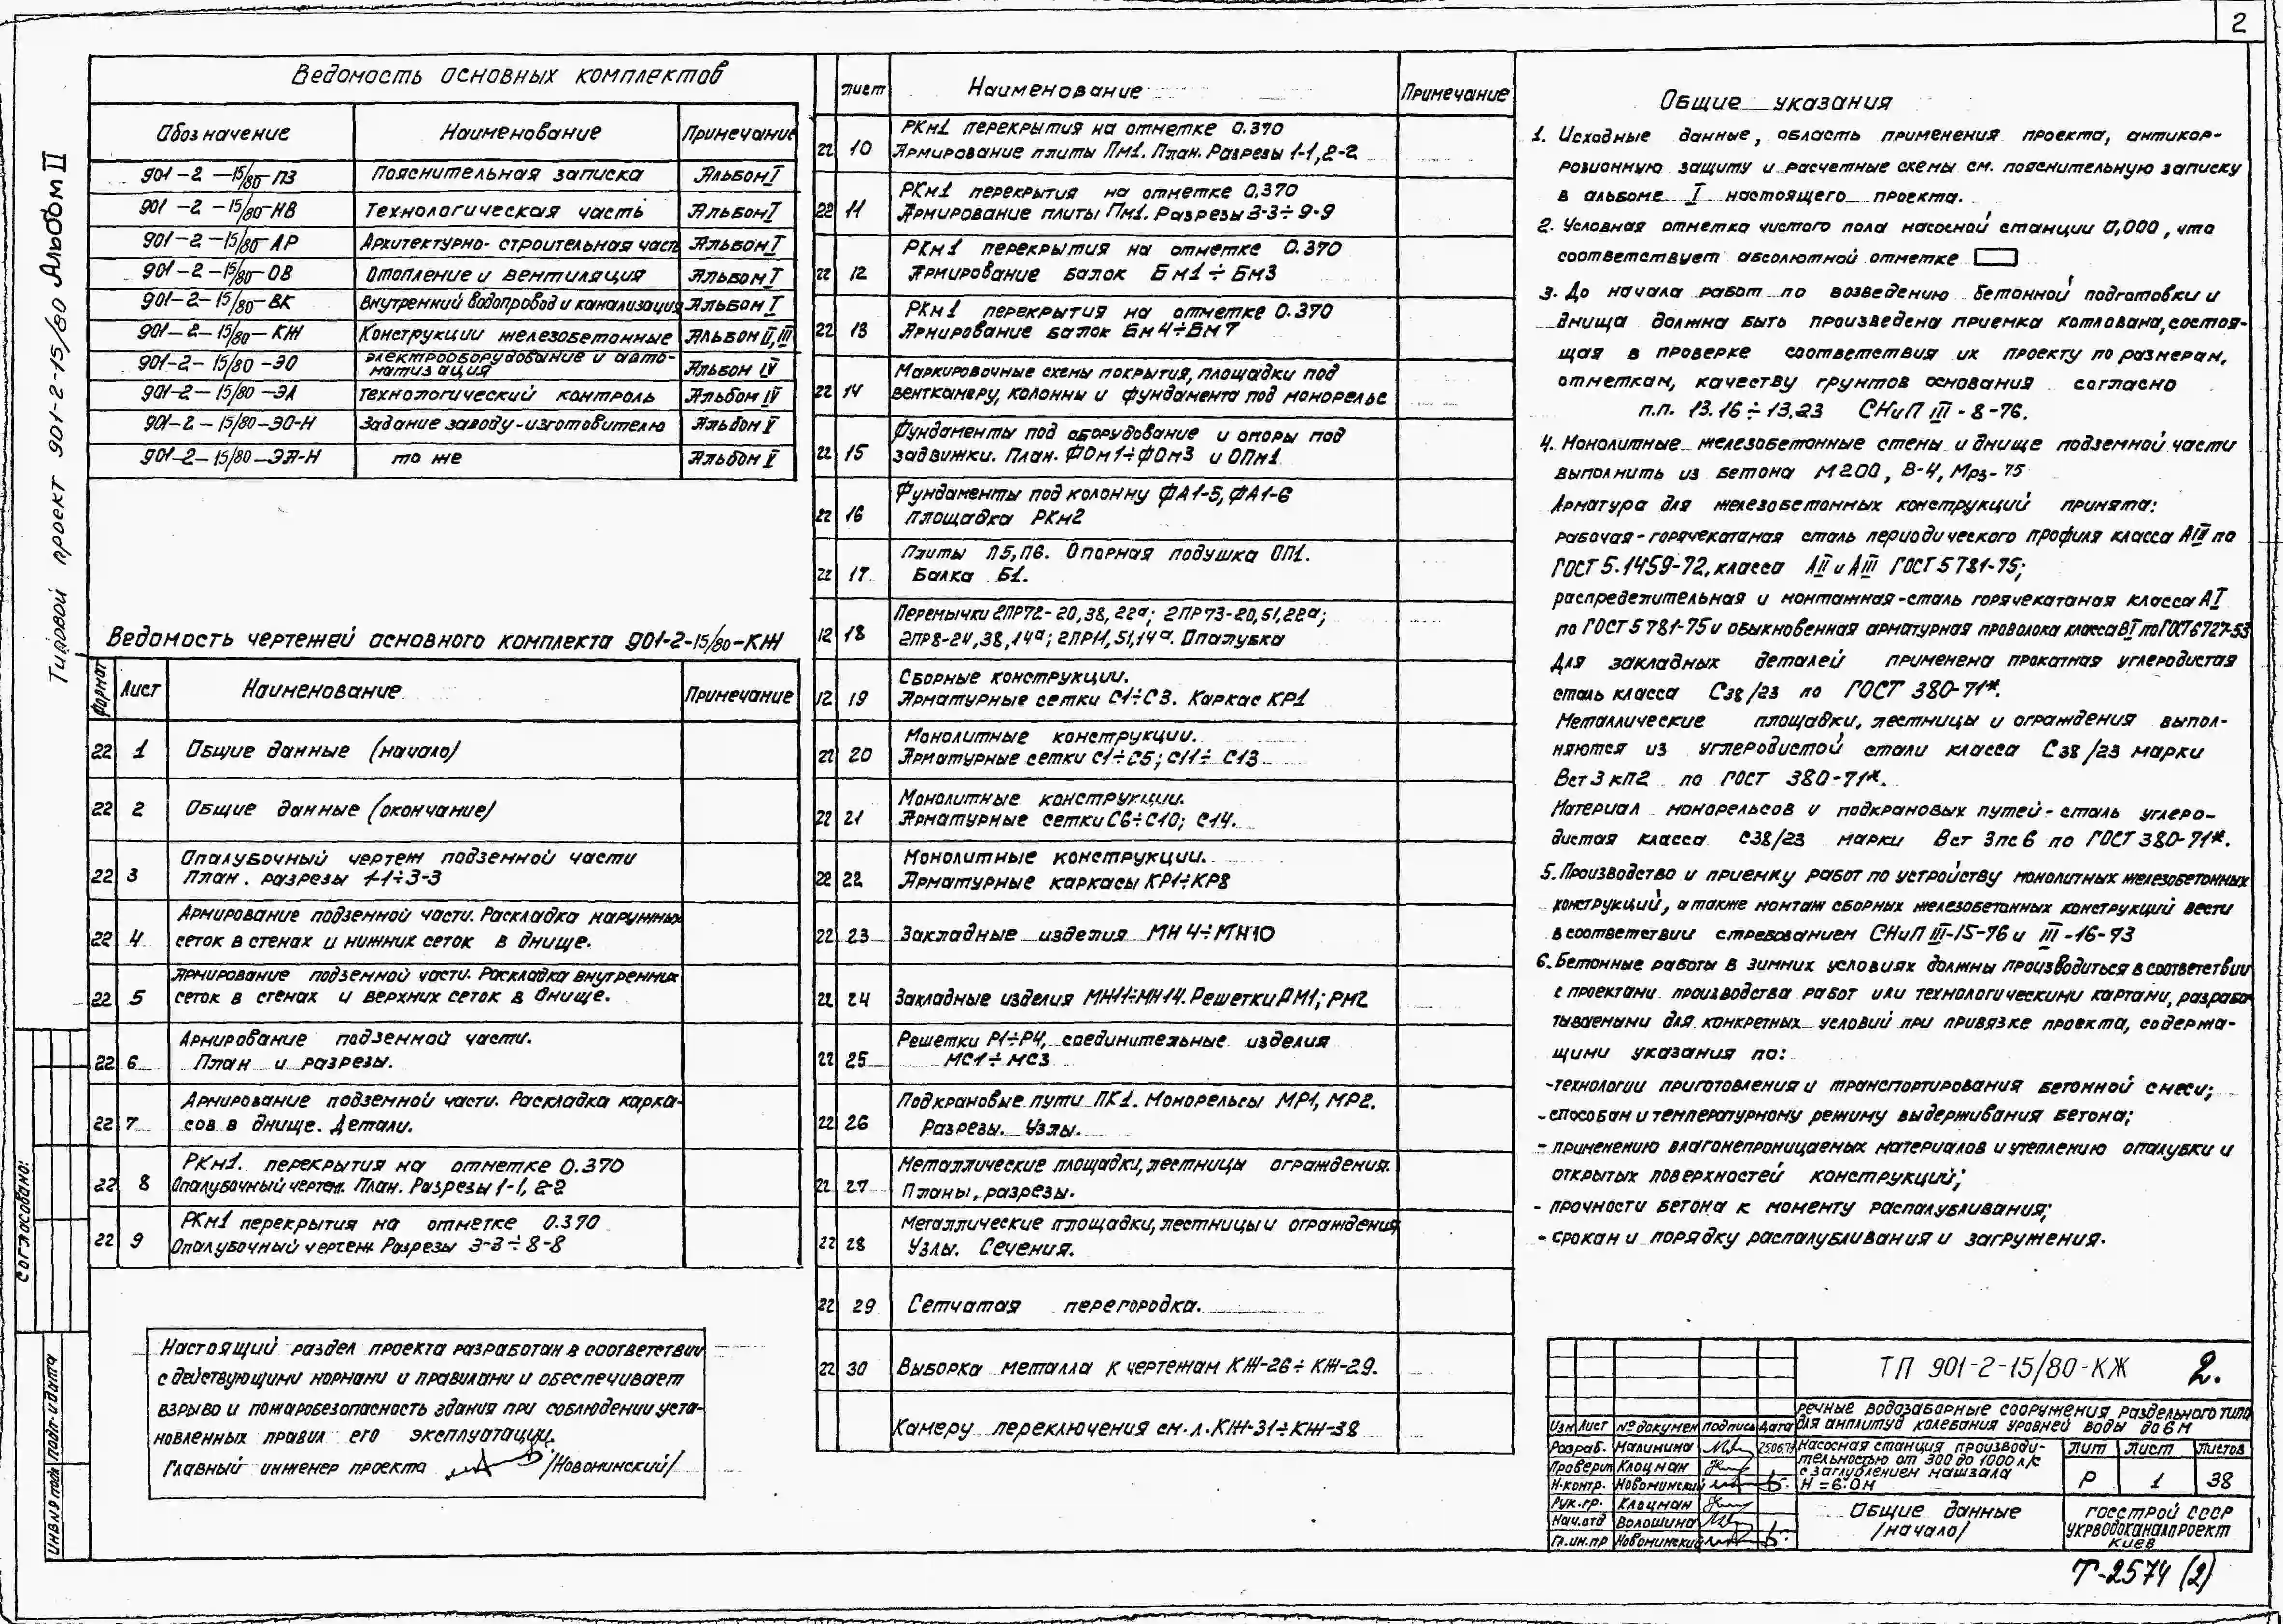 2
Типовой проект 901-2-15/80 Альбом II
Ведомость основных комплектов
Обозначение Наименование Примечание
901-2-15/80-ПЗ Пояснительная записка Альбом I
901-2-15/80-НВ Технологическая часть Альбом I
901-2-15/80-АР Архитектурно-строительная часть Альбом I
901-2-15/80-ОВ Отопление и вентиляция Альбом I
901-2-15/80-ВК Внутренний водопровод и канализация Альбом I
901-2-15/80-КЖ Конструкции железобетонные Альбом II, III
901-2-15/80-ЭО Электрооборудование и авто-
матизация Альбом IV
901-2-15/80-ЭА Технологический контроль Альбом IV
901-2-15/80-ЭО-Н Задание заводу-изготовителю Альбом V
901-2-15/80-ЭА-Н то же Альбом V
Ведомость чертежей основного комплекта 901-2-15/80-КЖ
Формат Лист Наименование Примечание
22 1 Общие данные (начало)
22 2 Общие данные (окончание)
22 3 Опалубочный чертеж подземной части
План. разрезы 1-1÷3-3
22 4 Армирование подземной части. Раскладка наружных
сеток в стенах и нижних сеток в днище.
22 5 Армирование подземной части. Раскладка внутренних
сеток в стенах и верхних сеток в днище.
22 6 Армирование подземной части.
План и разрезы.
22 7 Армирование подземной части. Раскладка карка-
сов в днище. Детали.
22 8 РКм1. перекрытия на отметке 0.370
Опалубочный чертеж. План. Разрезы 1-1, 2-2
22 9 РКм1 перекрытия на отметке 0.370
Опалубочный чертеж. Разрезы 3-3÷8-8
Настоящий раздел проекта разработан в соответствии
с действующими нормами и правилами и обеспечивает
взрыво и пожаробезопасность здания при соблюдении уста-
новленных правил его эксплуатации.
Главный инженер проекта /Новоминский/
Согласовано:
Инв № подл Подп. и дата
Лист Наименование Примечание
22 10 РКм1 перекрытия на отметке 0.370
Армирование плиты Пм1. План. Разрезы 1-1, 2-2
22 11 РКм1 перекрытия на отметке 0.370
Армирование плиты Пм1. Разрезы 3-3÷9-9
22 12 РКм1 перекрытия на отметке 0.370
Армирование балок Бм1÷Бм3
22 13 РКм1 перекрытия на отметке 0.370
Армирование балок Бм4÷Бм7
22 14 Маркировочные схемы покрытия, площадки под
венткамеру, колонны и фундамента под монорельс
22 15 Фундаменты под оборудование и опоры под
задвижки. План. ФОм1÷ФОм3 и ОПм1
22 16 Фундаменты под колонну ФА1-5, ФА1-6
площадка РКм2
22 17 Плиты П5, П6. Опорная подушка ОП1.
Балка Б1.
12 18 Перемычки 2ПР72-20,38,22а; 2ПР73-20,51,22а;
2ПР8-24,38,14а; 2ПР11,51,14а. Опалубка
12 19 Сборные конструкции.
Арматурные сетки С1÷С3. Каркас КР1
22 20 Монолитные конструкции.
Арматурные сетки С1÷С5; С11÷С13
22 21 Монолитные конструкции.
Арматурные сетки С6÷С10; С14.
22 22 Монолитные конструкции.
Арматурные каркасы КР1÷КР8
22 23 Закладные изделия МН4÷МН10
22 24 Закладные изделия МН11÷МН14. Решетки РМ1; РМ2
22 25 Решетки Р1÷Р4, соединительные изделия
МС1÷МС3
22 26 Подкрановые пути ПК1. Монорельсы МР1, МР2.
Разрезы. Узлы.
22 27 Металлические площадки, лестницы ограждения.
Планы, разрезы.
22 28 Металлические площадки, лестницы и ограждения
Узлы. Сечения.
22 29 Сетчатая перегородка.
22 30 Выборка металла к чертежам КЖ-26÷КЖ-29.
Камеру переключения см. л. КЖ-31÷КЖ-38
Общие указания
1. Исходные данные, область применения проекта, антикор-
розионную защиту и расчетные схемы см. пояснительную записку
в альбоме I настоящего проекта.
2. Условная отметка чистого пола насосной станции 0,000, что
соответствует абсолютной отметке
3. До начала работ по возведению бетонной подготовки и
днища должна быть произведена приемка котлована, состоя-
щая в проверке соответствия их проекту по размерам,
отметкам, качеству грунтов основания согласно
п.п. 13.16÷13.23 СНиП III-8-76.
4. Монолитные железобетонные стены и днище подземной части
выполнить из бетона М200, В-4, Мрз-75
Арматура для железобетонных конструкций принята:
рабочая-горячекатаная сталь периодического профиля класса АIII по
ГОСТ 5.1459-72, класса АII и АIII ГОСТ 5781-75;
распределительная и монтажная-сталь горячекатаная класса АI
по ГОСТ 5781-75 и обыкновенная арматурная проволока класса ВI по ГОСТ 6727-53
Для закладных деталей применена прокатная углеродистая
сталь класса С38/23 по ГОСТ 380-71*.
Металлические площадки, лестницы и ограждения выпол-
няются из углеродистой стали класса С38/23 марки
Вст3кп2 по ГОСТ 380-71*.
Материал монорельсов и подкрановых путей-сталь углеро-
дистая класса С38/23 марки Вст 3пс6 по ГОСТ 380-71*.
5. Производство и приемку работ по устройству монолитных железобетонных
конструкций, а также монтаж сборных железобетонных конструкций вести
в соответствии с требованием СНиП III-15-76 и III-16-73
6. Бетонные работы в зимних условиях должны производиться в соответствии
с проектами производства работ или технологическими картами, разраба-
тываемыми для конкретных условий при привязке проекта, содержа-
щими указания по:
-технологии приготовления и транспортирования бетонной смеси;
-способам и температурному режиму выдерживания бетона;
-применению влагонепроницаемых материалов и утеплению опалубки и
открытых поверхностей конструкций;
-прочности бетона к моменту распалубливания;
-срокам и порядку распалубливания и загружения.
ТП 901-2-15/80-КЖ 2.
Речные водозаборные сооружения раздельного типа
для амплитуд колебания уровней воды до 6 м
Изм Лист № докумен подпись Дата
Разраб. Малинина 25.06.79
Проверил Клоцман
Н.контр. Новоминский
Рук.гр. Клоцман
Нач.отд Волошина
Гл.ин.пр Новоминский
Насосная станция производи-
тельностью от 300 до 1000 л/с
с заглублением машзала
Н=6.0м
Лит Лист Листов
Р 1 38
Общие данные
/начало/
Госстрой СССР
Укрводоканалпроект
Киев
Т-2574 (2)